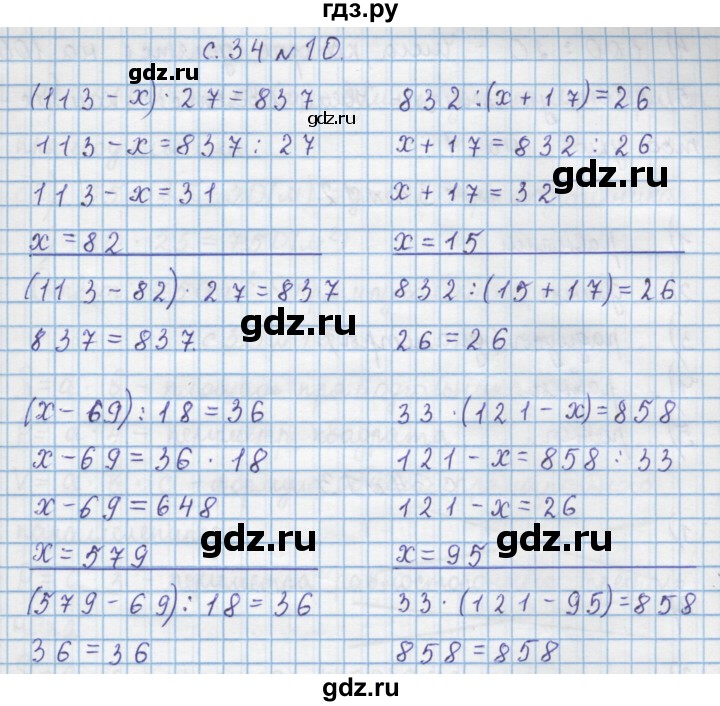 гдз.ру
с. 34 № 10.
gdz.ru
(113 - x) · 27 = 837
113 - x = 837 : 27
113 - x = 31
x = 82
(113 - 82) · 27 = 837
837 = 837.
gdz.ru
832 : (x + 17) = 26
x + 17 = 832 : 26
x + 17 = 32
x = 15
832 : (15 + 17) = 26
26 = 26
gdz.ru
gdz.ru
(x - 69) : 18 = 36
x - 69 = 36 · 18
x - 69 = 648
x = 579
(579 - 69) : 18 = 36
36 = 36
gdz.ru
33 · (121 - x) = 858
121 - x = 858 : 33
121 - x = 26
x = 95
33 · (121 - 95) = 858
858 = 858
gdz.ru
gdz.ru
gdz.ru